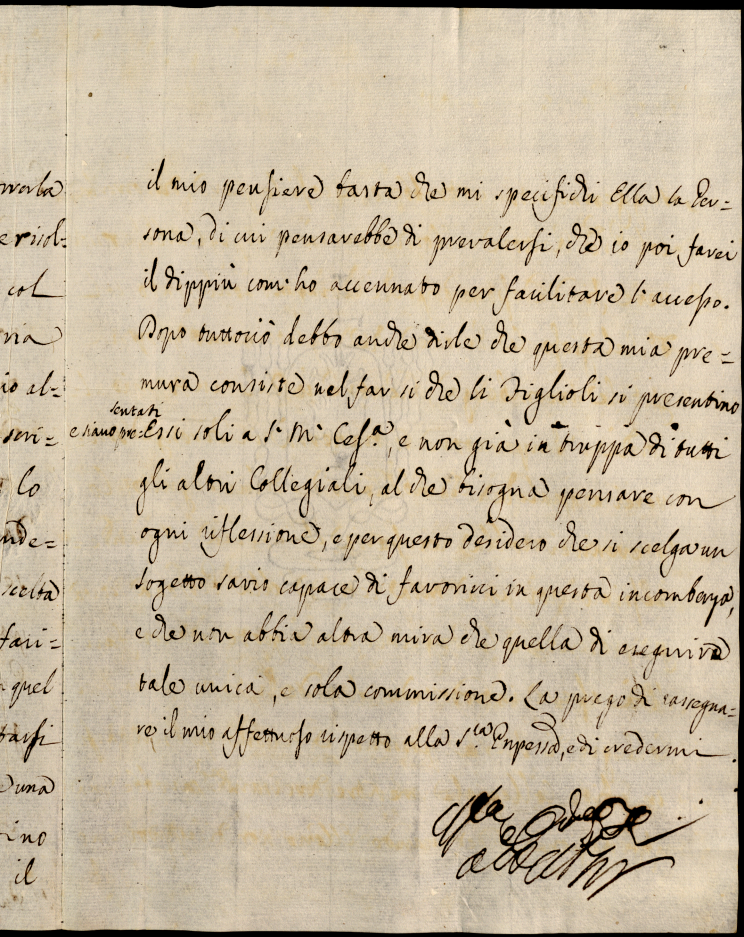 rverla
e risol=
col
ria
io al=
scri=
lo
nde=
scelta
fari=
quel
tarsi
una
ino
il
il mio pensiere basta che mi specifichi Ella la Per=
sona, di cui pensarebbe di prevalersi, che io poi farei
il dippiù com' ho accennato per facilitare l'accesso.
Dopo tuttociò debbo anche dirle che questa mia pre=
mura consiste nel far si che li Figlioli si presentino
e siano pre=sentati Essi soli a S. M. Ces.ª, e non già in truppa di tutti
gli altri Collegiali, al che bisogna pensare con
ogni riflessione, e per questo desidero che si scelga un
sogetto savio capace di favorirci in questa incombenza,
e che non abbia altra mira che quella di eseguire
tale unica, e sola commissione. La prego di rassegna=
re il mio affettuoso rispetto alla S.ra Enpessa, e di credermi